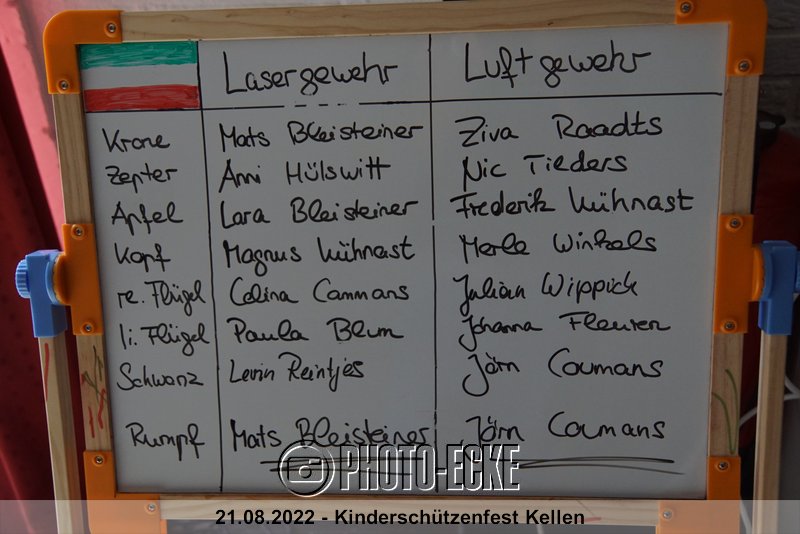 Lasergewehr Luftgewehr
Krone Mats Bleisteiner Ziva Raadts
Zepter Anni Hülswitt Nic Tieders
Apfel Lara Bleisteiner Frederik Kühnast
Kopf Magnus Kühnast Merle Winkels
re. Flügel Celina Cammans Julian Wippich
li. Flügel Paula Blum Johanna Fleuren
Schwanz Levin Reintjes Jörn Coumans
Rumpf Mats Bleisteiner Jörn Coumans
PHOTO-ECKE
21.08.2022 - Kinderschützenfest Kellen